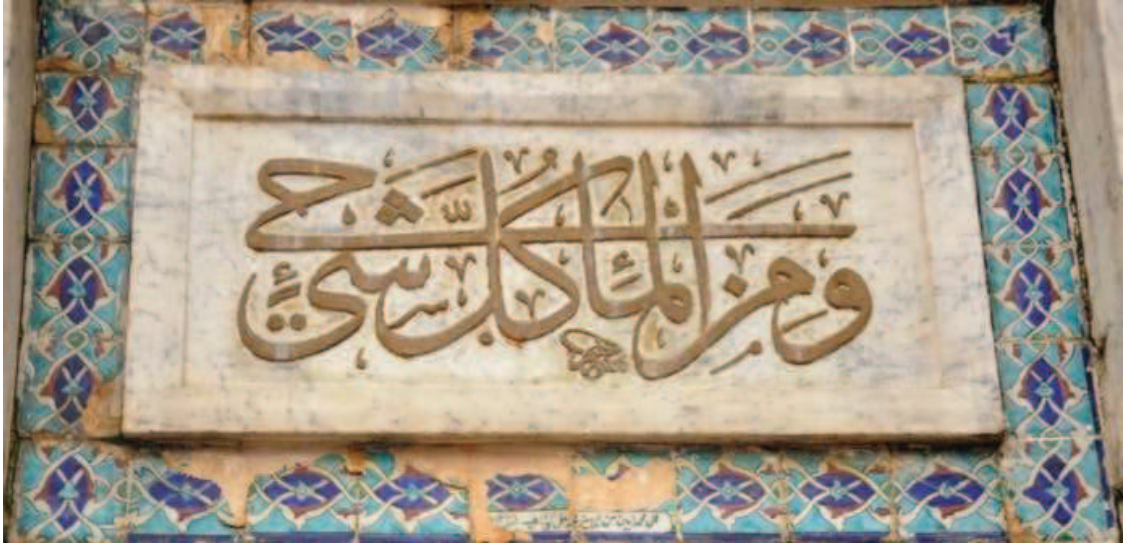 وَمِنَ الْمَاءِ كُلُّ شَیْءٍ حَیّ